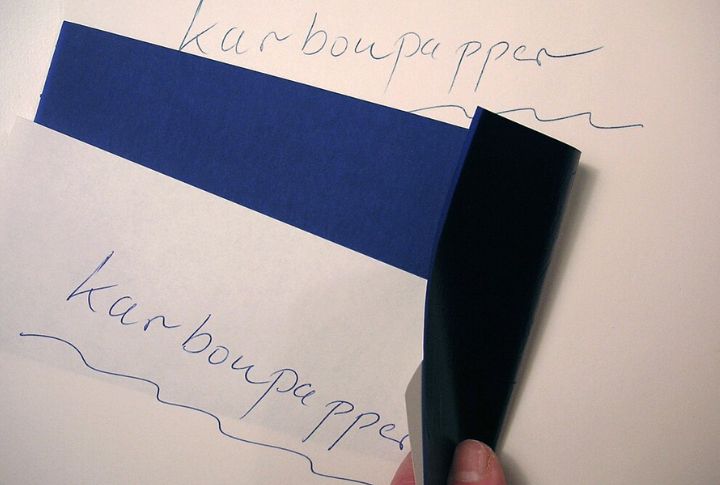 karbonpapper
karbonpapper